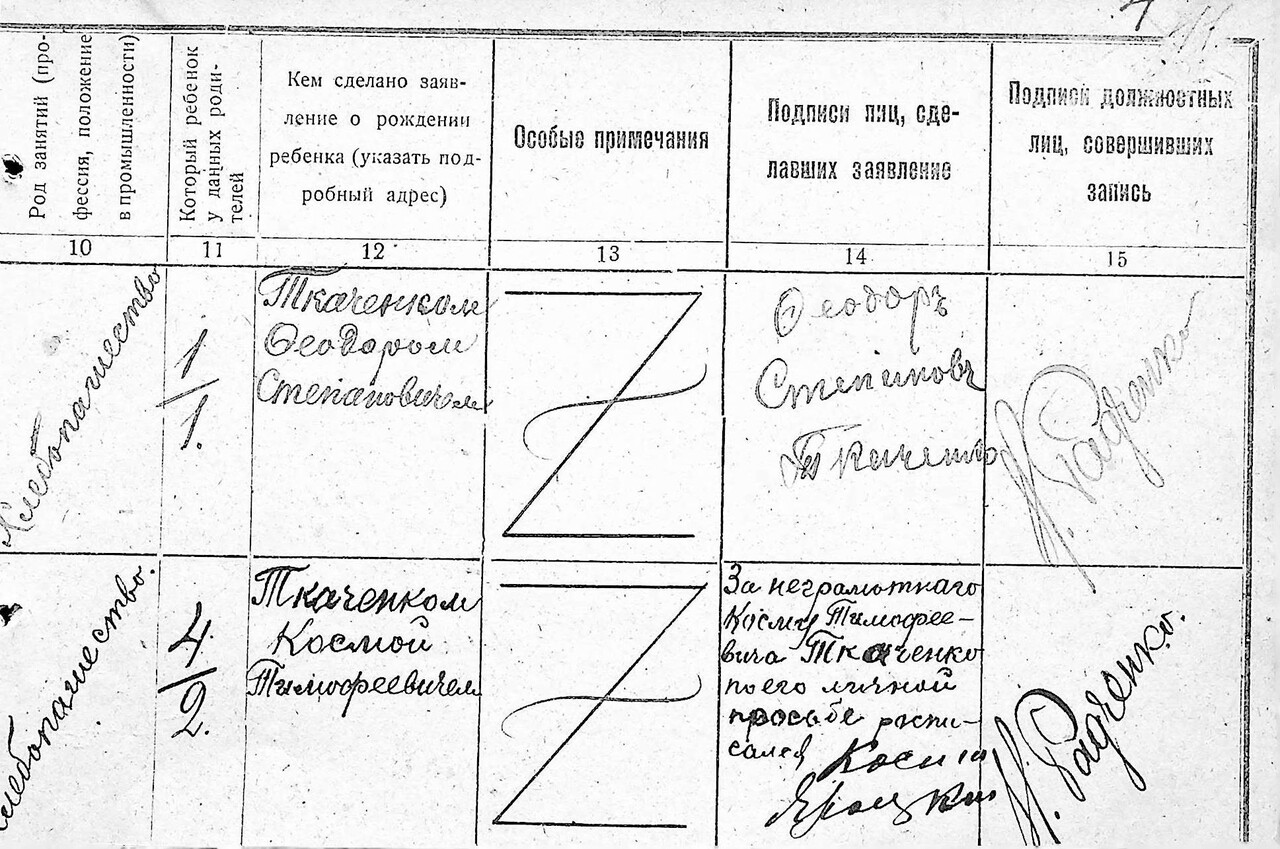 Род занятий (про-
фессия, положение
в промышленности)
Который ребенок
у данных роди-
телей
Кем сделано заяв-
ление о рождении
ребенка (указать под-
робный адрес)
Особые примечания
Подписи лиц, сде-
лавших заявление
Подписи должностных
лиц, совершивших
запись
10
11
12
13
14
15
Хлебопашество
1/1.
Ткаченком
Феодаром
Степановичем
Феодаръ
Степановъ
Ткаченко
Радченко
лебопашество.
4/2.
Ткаченком
Космой
Тимофеевичем
За неграмотнаго
Косму Тимофее-
вича Ткаченко
по его личной
просьбе распи-
сался Косма
Радченко.